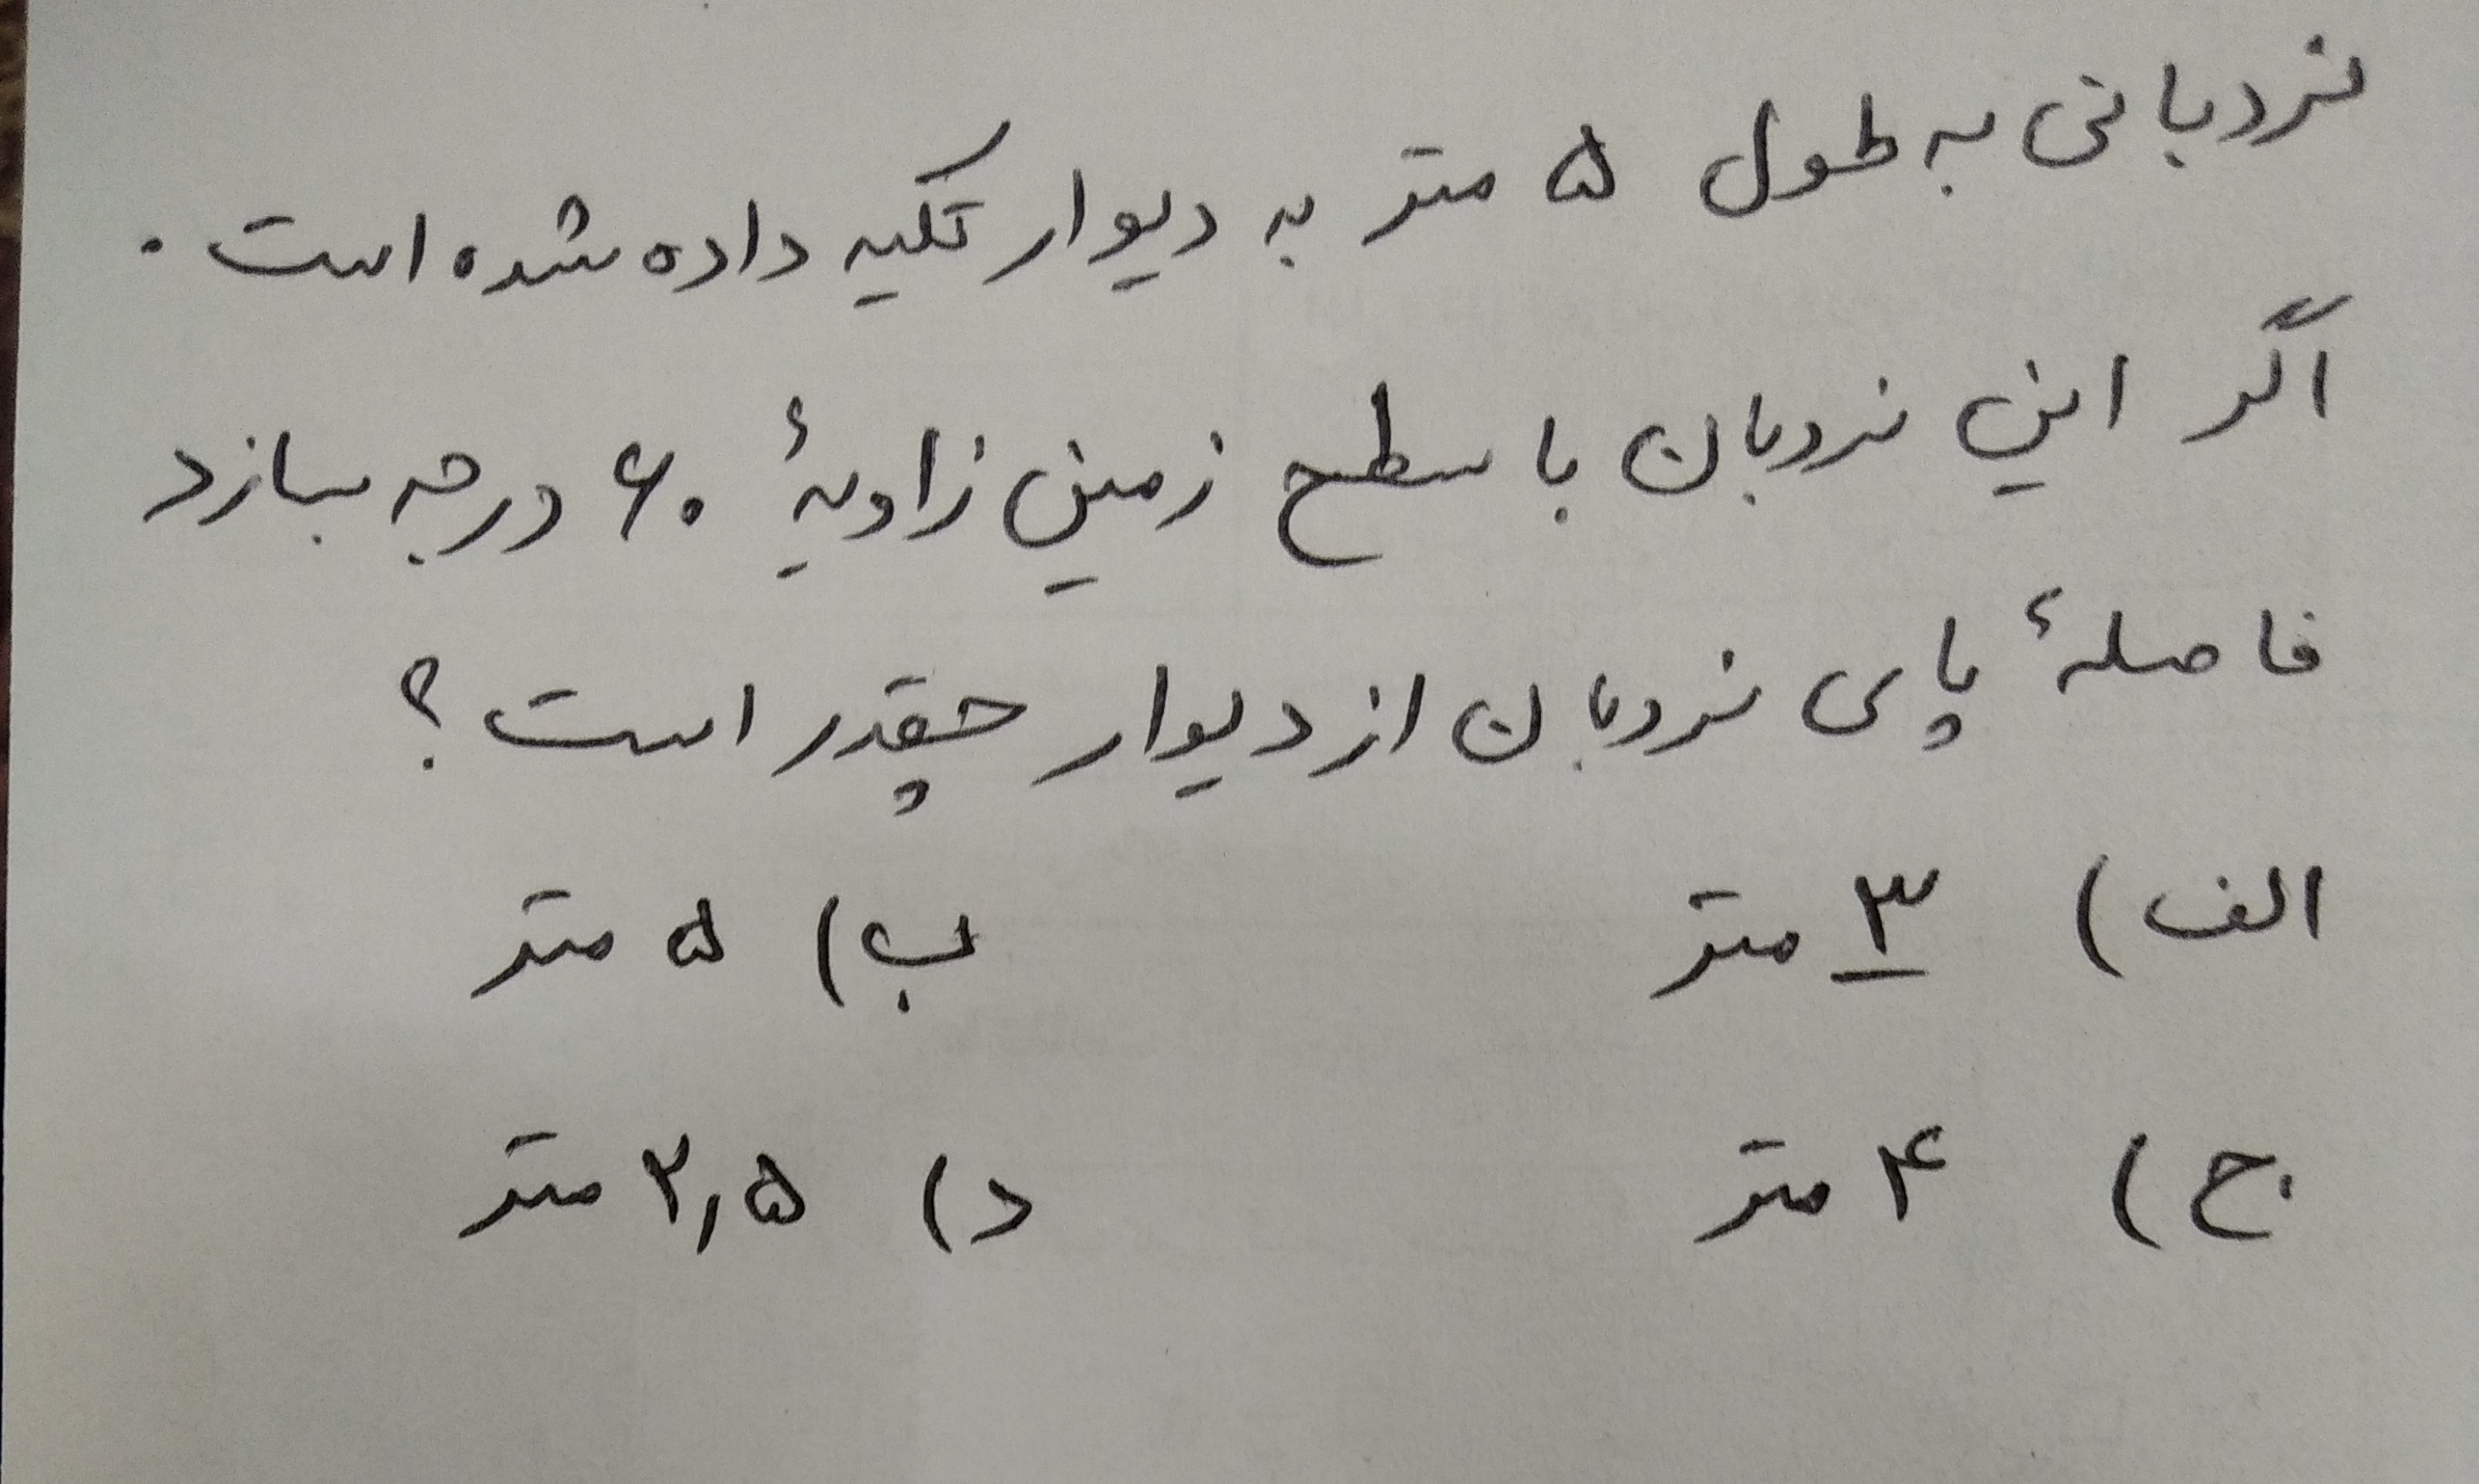 نردبانی به طول ۵ متر به دیوار تکیه داده شده است.
اگر این نردبان با سطح زمین زاویهٔ ۶۰ درجه بسازد
فاصلهٔ پای نردبان از دیوار چقدر است؟
الف) ۳ متر ب) ۵ متر
ج) ۴ متر د) ۲٫۵ متر